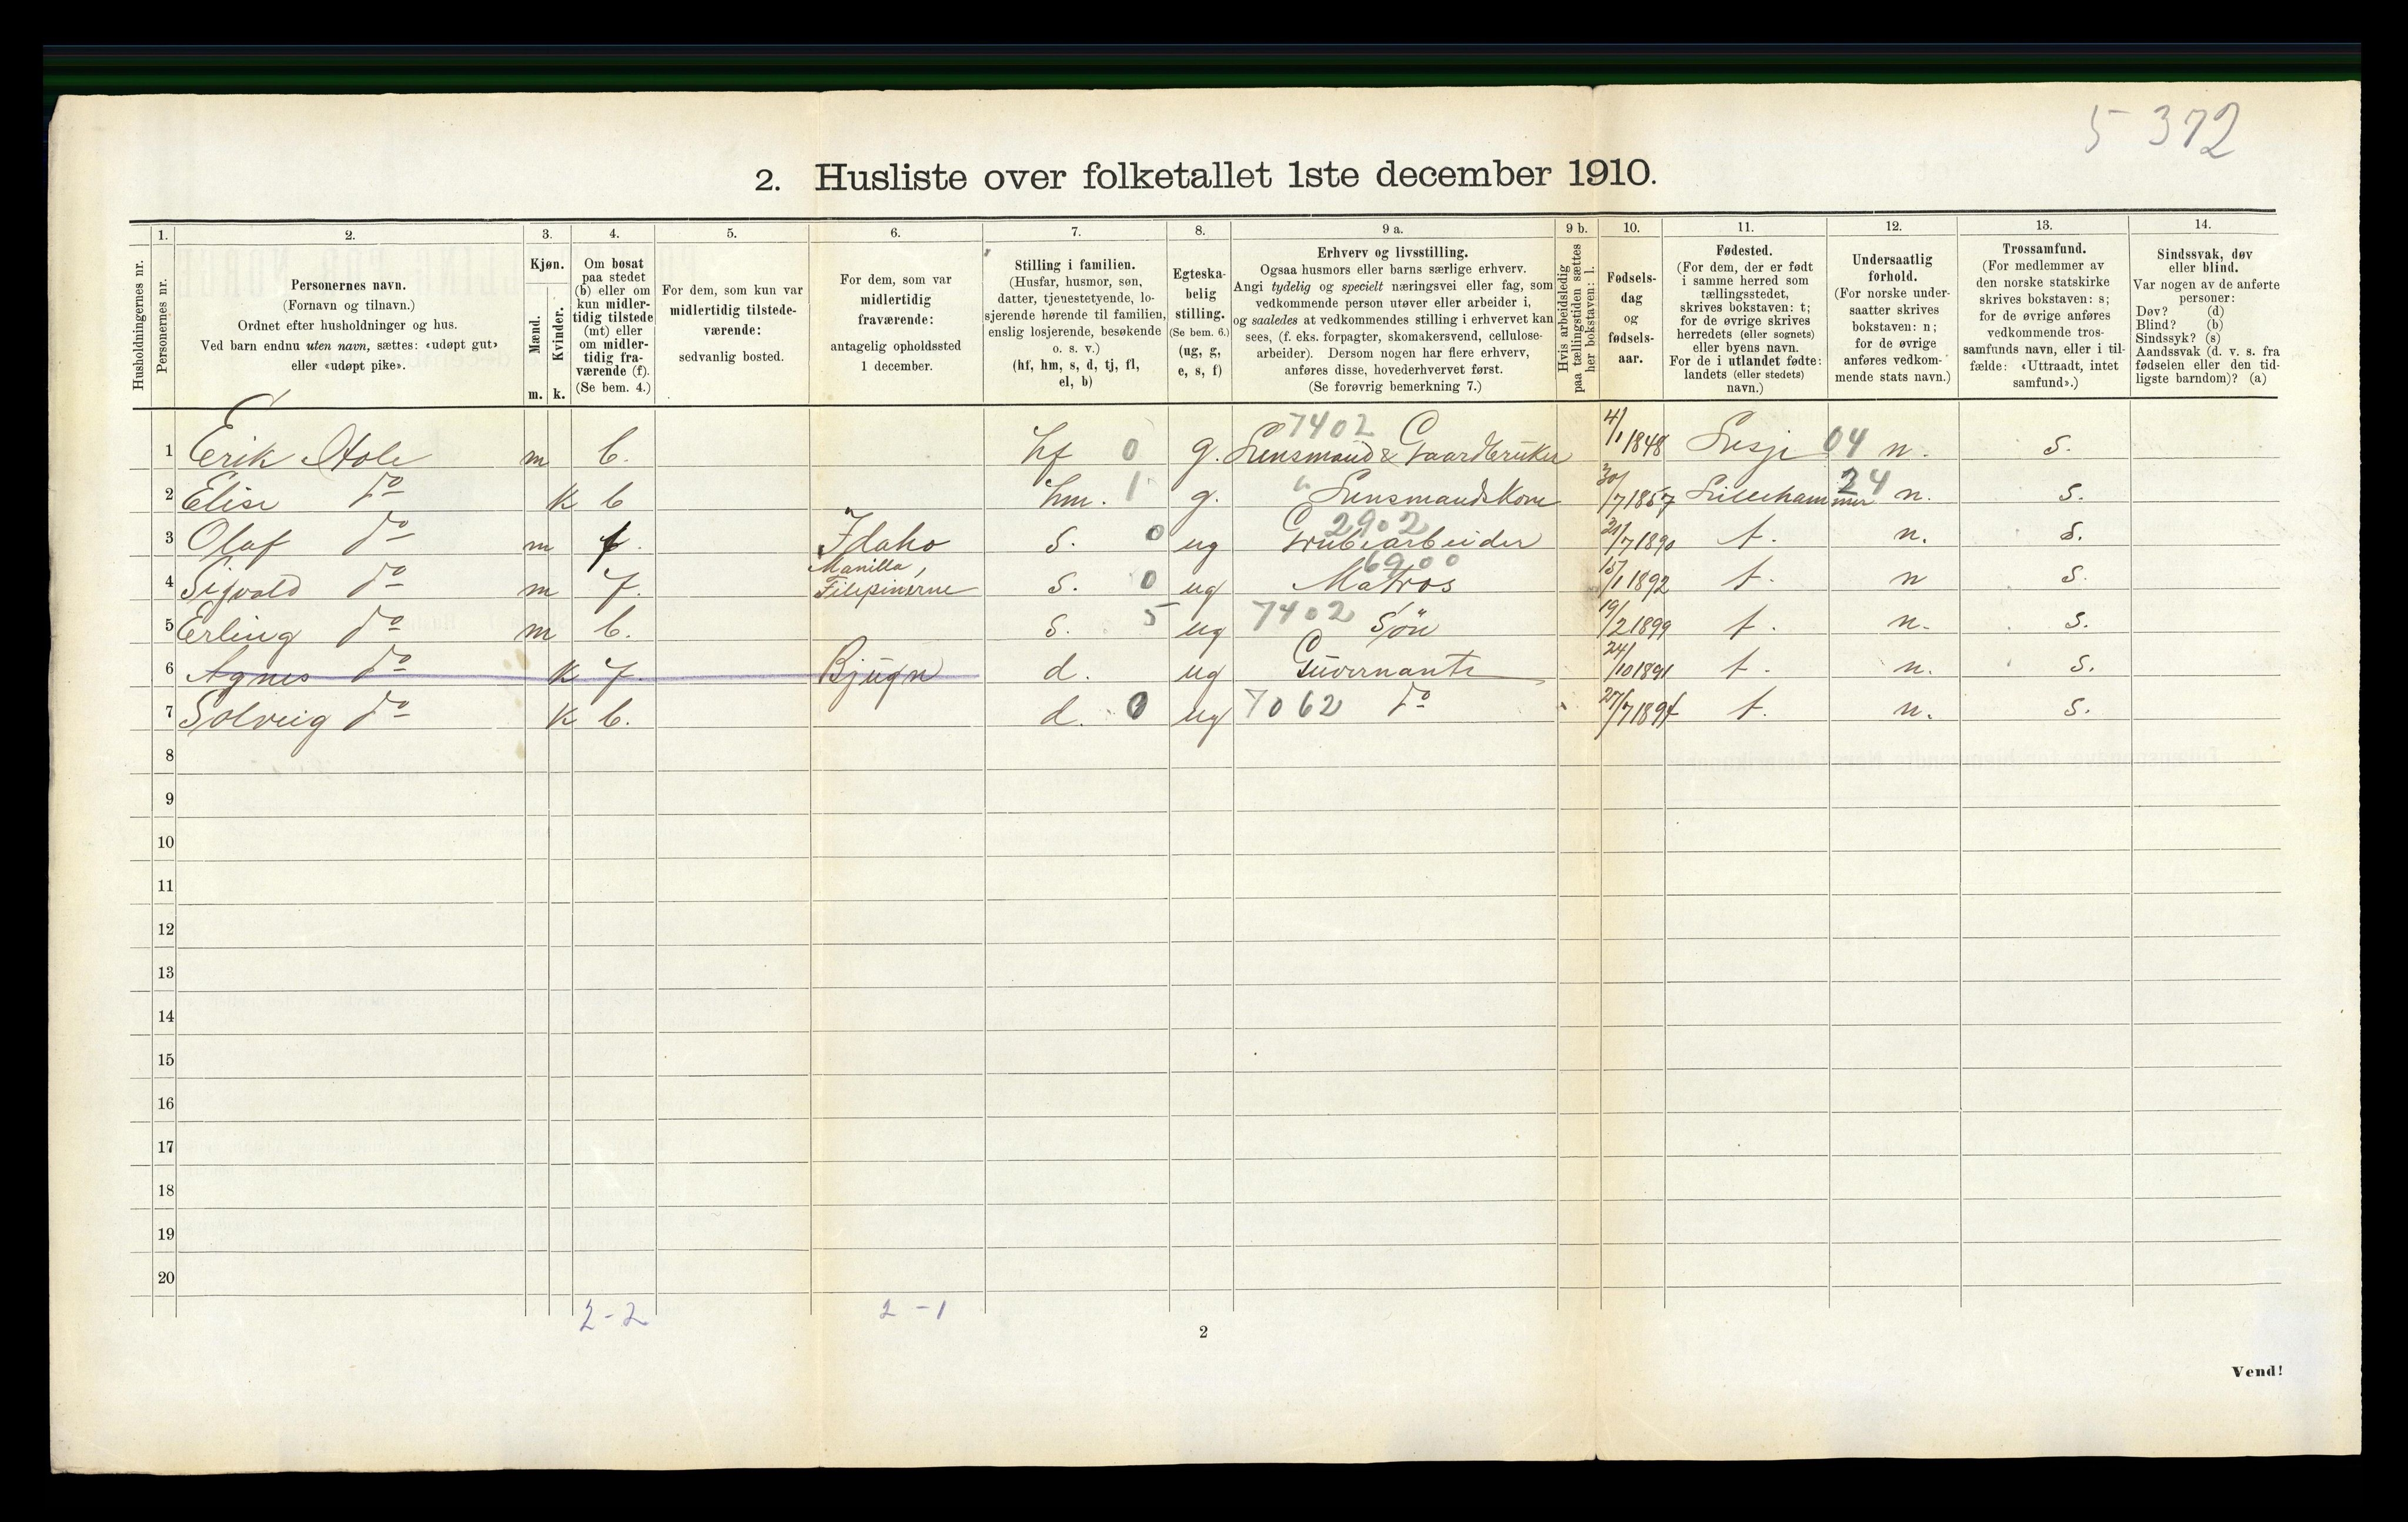 5 372
2. Husliste over folketallet 1ste december 1910.
1. 2. 3. 4. 5. 6. 7. 8. 9 a. 9 b. 10. 11. 12. 13. 14.
Husholdningernes nr.
Personernes nr.
Personernes navn.
(Fornavn og tilnavn.)
Ordnet efter husholdninger og hus.
Ved barn endnu uten navn, sættes: «udøpt gut»
eller «udøpt pike».
Kjøn.
Mænd.
Kvinder.
m. k.
Om bosat
paa stedet
(b) eller om
kun midler-
tidig tilstede
(mt) eller
om midler-
tidig fra-
værende (f).
(Se bem. 4.)
For dem, som kun var
midlertidig tilstede-
værende:
sedvanlig bosted.
For dem, som var
midlertidig
fraværende:
antagelig opholdssted
1 december.
Stilling i familien.
(Husfar, husmor, søn,
datter, tjenestetyende, lo-
sjerende hørende til familien,
enslig losjerende, besøkende
o. s. v.)
(hf, hm, s, d, tj, fl,
el, b)
Egteska-
belig
stilling.
(Se bem. 6.)
(ug, g,
e, s, f)
Erhverv og livsstilling.
Ogsaa husmors eller barns særlige erhverv.
Angi tydelig og specielt næringsvei eller fag, som
vedkommende person utøver eller arbeider i,
og saaledes at vedkommendes stilling i erhvervet kan
sees, (f. eks. forpagter, skomakersvend, cellulose-
arbeider). Dersom nogen har flere erhverv,
anføres disse, hovederhvervet først.
(Se forøvrig bemerkning 7.)
Hvis arbeidsledig
paa tællingstiden sættes
her bokstaven: l.
Fødsels-
dag
og
fødsels-
aar.
Fødested.
(For dem, der er født
i samme herred som
tællingsstedet,
skrives bokstaven: t;
for de øvrige skrives
herredets (eller sognets)
eller byens navn.
For de i utlandet fødte:
landets (eller stedets)
navn.)
Undersaatlig
forhold.
(For norske under-
saatter skrives
bokstaven: n;
for de øvrige
anføres vedkom-
mende stats navn.)
Trossamfund.
(For medlemmer av
den norske statskirke
skrives bokstaven: s;
for de øvrige anføres
vedkommende tros-
samfunds navn, eller i til-
fælde: «Uttraadt, intet
samfund».)
Sindssvak, døv
eller blind.
Var nogen av de anførte
personer:
Døv? (d)
Blind? (b)
Sindssyk? (s)
Aandssvak (d. v. s. fra
fødselen eller den tid-
ligste barndom)? (a)
7402
1 Erik Hole m b. hf 0 g. Lensmand & Gaardbruker 4/1 1848 Lesje 04 n. s.
2 Elise do k b hm. 1 g. " Lensmandskone 30/7 1857 Lillehammer 24 n. s.
2902
3 Olaf do m f. Idaho s. 0 ug Grubearbeider 21/7 1890 t. n. s.
Manilla, 6900
4 Sigvald do m f. Filipinerne s. 0 ug Matros 15/1 1892 t. n s.
5 Erling do m b. s. 5 ug 7402 Søn 19/2 1899 t. n. s.
6 Agnes do k f. Bjugn d. ug Guvernante 24/10 1891 t. n. s.
7 Solveig do k b. d. 0 ug 7062 do 27/7 1894 t. n. s.
8
9
10
11
12
13
14
15
16
17
18
19
20
2-2 2-1
2
Vend!